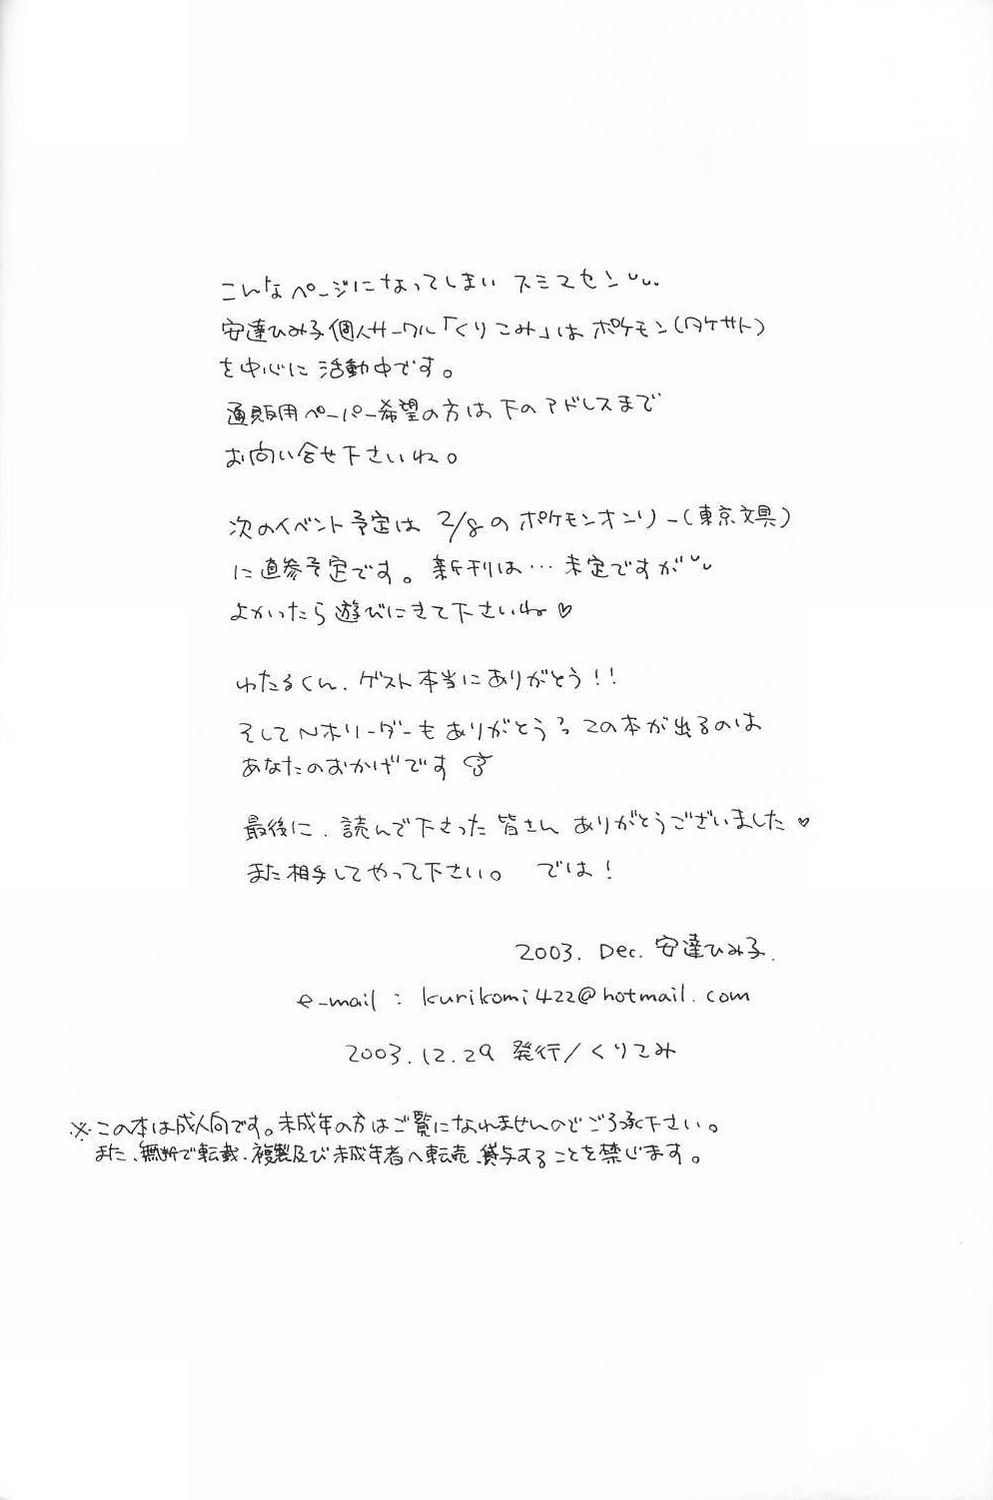 こんなページになってしまい スミマセン
安達ひみ子個人サークル「くりこみ」は ポケモン(タケサト)
を中心に 活動中です。
通販用ペーパー希望の方は下のアドレスまで
お問い合せ下さいね。
次のイベント予定は 2/8の ポケモンオンリー(東京文具)
に直参予定です。 新刊は… 未定ですが
よかったら遊びにきて下さいね♡
わたるくん、ゲスト本当にありがとう!!
そして Nホリーダーも ありがとう この本が出るのは
あなたのおかげです
最後に、読んで下さった 皆さん ありがとうございました♡
また相手してやって下さい。 では!
2003. Dec. 安達ひみ子.
e-mail : kurikomi422@hotmail.com
2003.12.29 発行/くりこみ
※この本は成人向です。未成年の方はご覧になれませんのでご了承下さい。
また、無断で転載、複製及び未成年者へ転売、貸与することを禁じます。